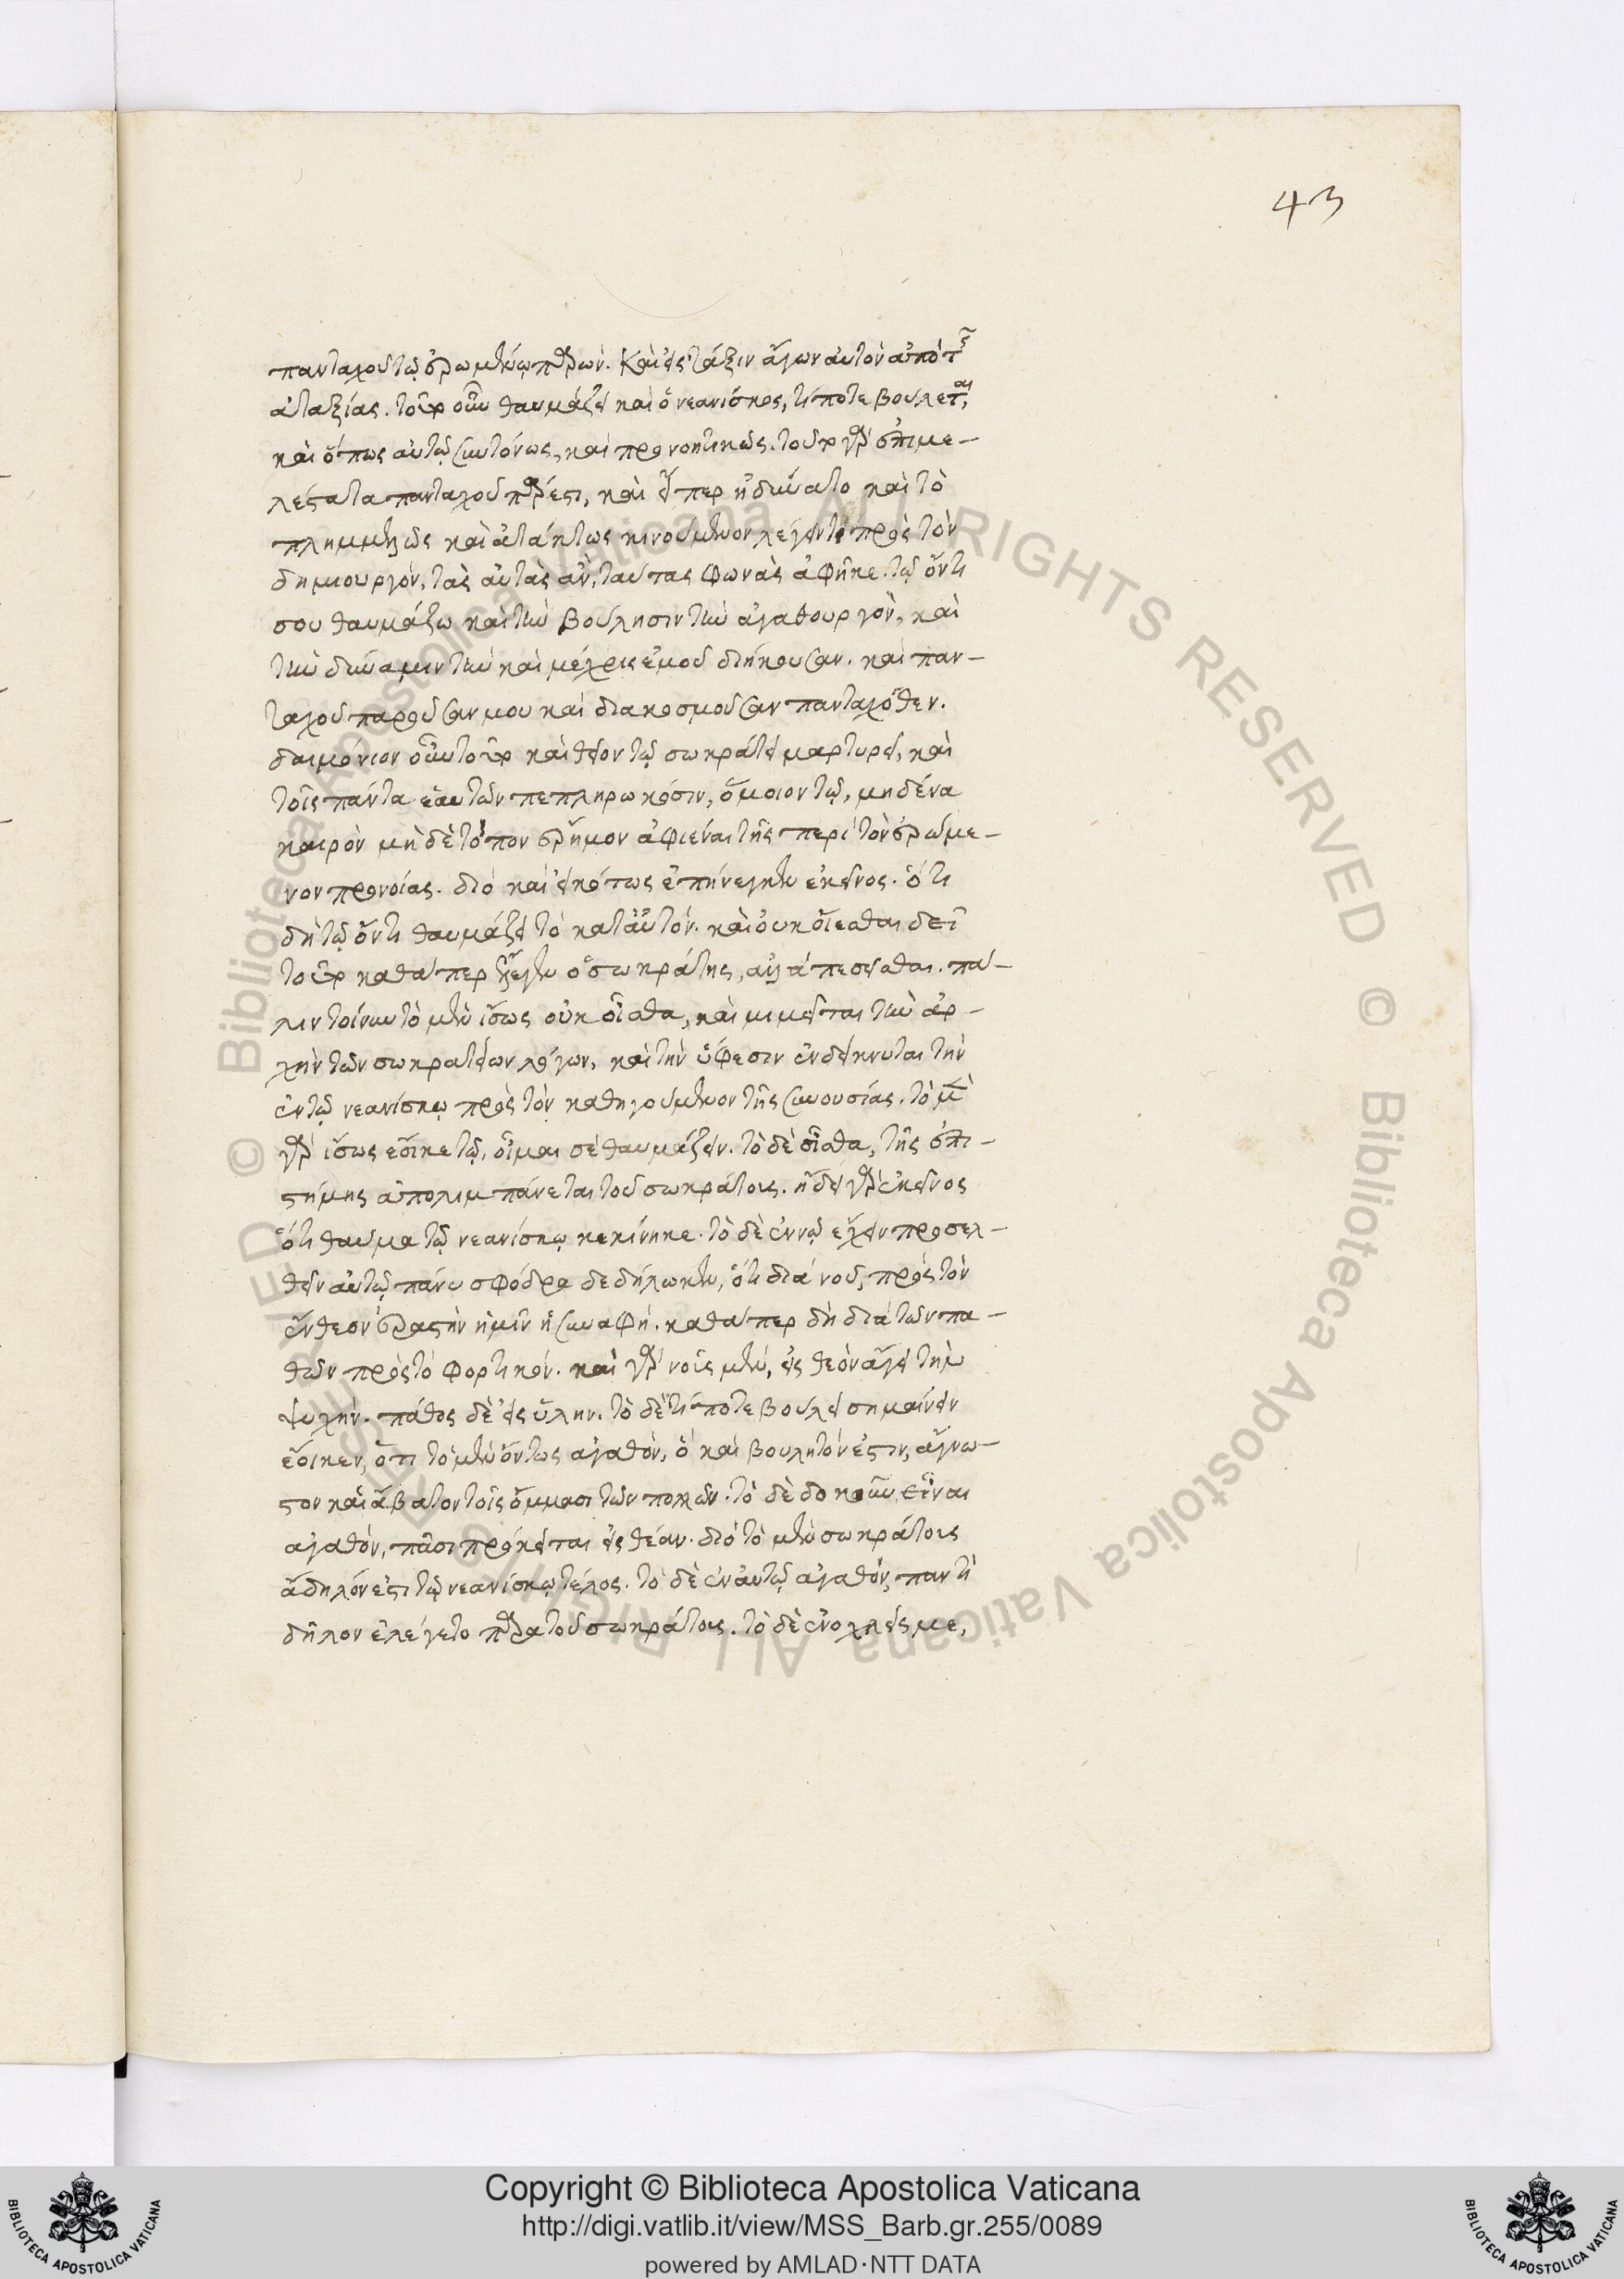 43
πανταχοῦ τῷ ἐρωμένῳ παρών. καὶ εἰς τάξιν ἄγων αὐτὸν ἀπὸ τῆς
ἀταξίας. τοῦτο οὖν θαυμάζει καὶ ὁ νεανίσκος, τί ποτε βούλεται,
καὶ ὅπως αὐτῷ συντόνως, καὶ προνοητικῶς. τοῦτο γὰρ ἐπιμε-
λέστατα πανταχοῦ πάρεστι, καὶ εἴπερ ἠδύνατο καὶ τὸ
πλημμελῶς καὶ ἀτάκτως κινούμενον λέγειν τι πρὸς τὸν
δημιουργόν, τὰς αὐτὰς ἂν, ταύτας φωνὰς ἀφῆκε. τῷ ὄντι
σου θαυμάζω καὶ τὴν βούλησιν τὴν ἀγαθουργόν, καὶ
τὴν δύναμιν τὴν καὶ μέχρις ἐμοῦ διήκουσαν. καὶ παν-
ταχοῦ παροῦσαν μου καὶ διακοσμοῦσαν πανταχόθεν.
δαιμόνιον οὖν τοῦτο καὶ θεῖον τῷ σωκράτει μαρτυρεῖ, καὶ
τοῖς πάντα ἑαυτῶν πεπληρωκόσιν, ὅμοιον τῷ, μηδένα
καιρὸν μηδὲ τόπον ἔρημον ἀφιέναι τῆς περὶ τὸν ἐρώμε-
νον προνοίας. διὸ καὶ εἰκότως ἐπήνεγκεν ἐκεῖνος. ὅτι
δὴ τῷ ὄντι θαυμάζει τὸ κατ' αὐτόν. καὶ οὐκ οἴεσθαι δεῖ
τοῦτο καθάπερ ἔλεγεν ὁ σωκράτης, ἀλλὰ πεσεῖσθαι. πά-
λιν τοίνυν τὸ μὲν ἴσως οὐκ οἶσθα, καὶ μιμεῖται τὴν ἀρ-
χὴν τῶν σωκρατείων λόγων, καὶ τὴν ὕφεσιν ἐνδείκνυται τὴν
ἐν τῷ νεανίσκῳ πρὸς τὸν καθηγούμενον τῆς συνουσίας. τὸ μὲν
γὰρ ἴσως ἔοικε τῷ, οἶμαι σὲ θαυμάζειν. τὸ δὲ οἶσθα, τῆς ἐπι-
στήμης ἀπολιμπάνεται τοῦ σωκράτους. ᾔδει γὰρ ἐκεῖνος
ὅτι θαῦμα τῷ νεανίσκῳ κεκίνηκε. τὸ δὲ ἐν νῷ εἶχεν προσελ-
θεῖν αὐτῷ πάνυ σφόδρα δεδήλωκεν, ὅτι διὰ νοῦ, πρὸς τὸν
ἔνθεον ἐραστὴν ἡμῖν ἡ συναφή. καθάπερ δὴ διὰ τῶν πα-
θῶν πρὸς τὸ φορτικόν. καὶ γὰρ νοῦς μὲν, εἰς θεὸν ἄγει τὴν
ψυχήν. πάθος δὲ εἰς ὕλην. τὸ δὲ τί ποτε βούλει σημαίνειν
ἔοικεν, ὅτι τὸ μὲν ὄντως ἀγαθόν, ὃ καὶ βουλητόν ἐστιν, ἄγνω-
στον καὶ ἄβατον τοῖς ὄμμασι τῶν πολλῶν. τὸ δὲ δοκοῦν εἶναι
ἀγαθόν, πᾶσι πρόκειται εἰς θέαν. διὸ τὸ μὲν σωκράτους
ἄδηλόν ἐστι τῷ νεανίσκῳ τέλος. τὸ δὲ ἐν αὐτῷ ἀγαθόν, παντὶ
δῆλον ἐλέγετο παρὰ τοῦ σωκράτους. τὸ δὲ ἐνοχλεῖς με,
Copyright © Biblioteca Apostolica Vaticana
http://digi.vatlib.it/view/MSS_Barb.gr.255/0089
powered by AMLAD·NTT DATA